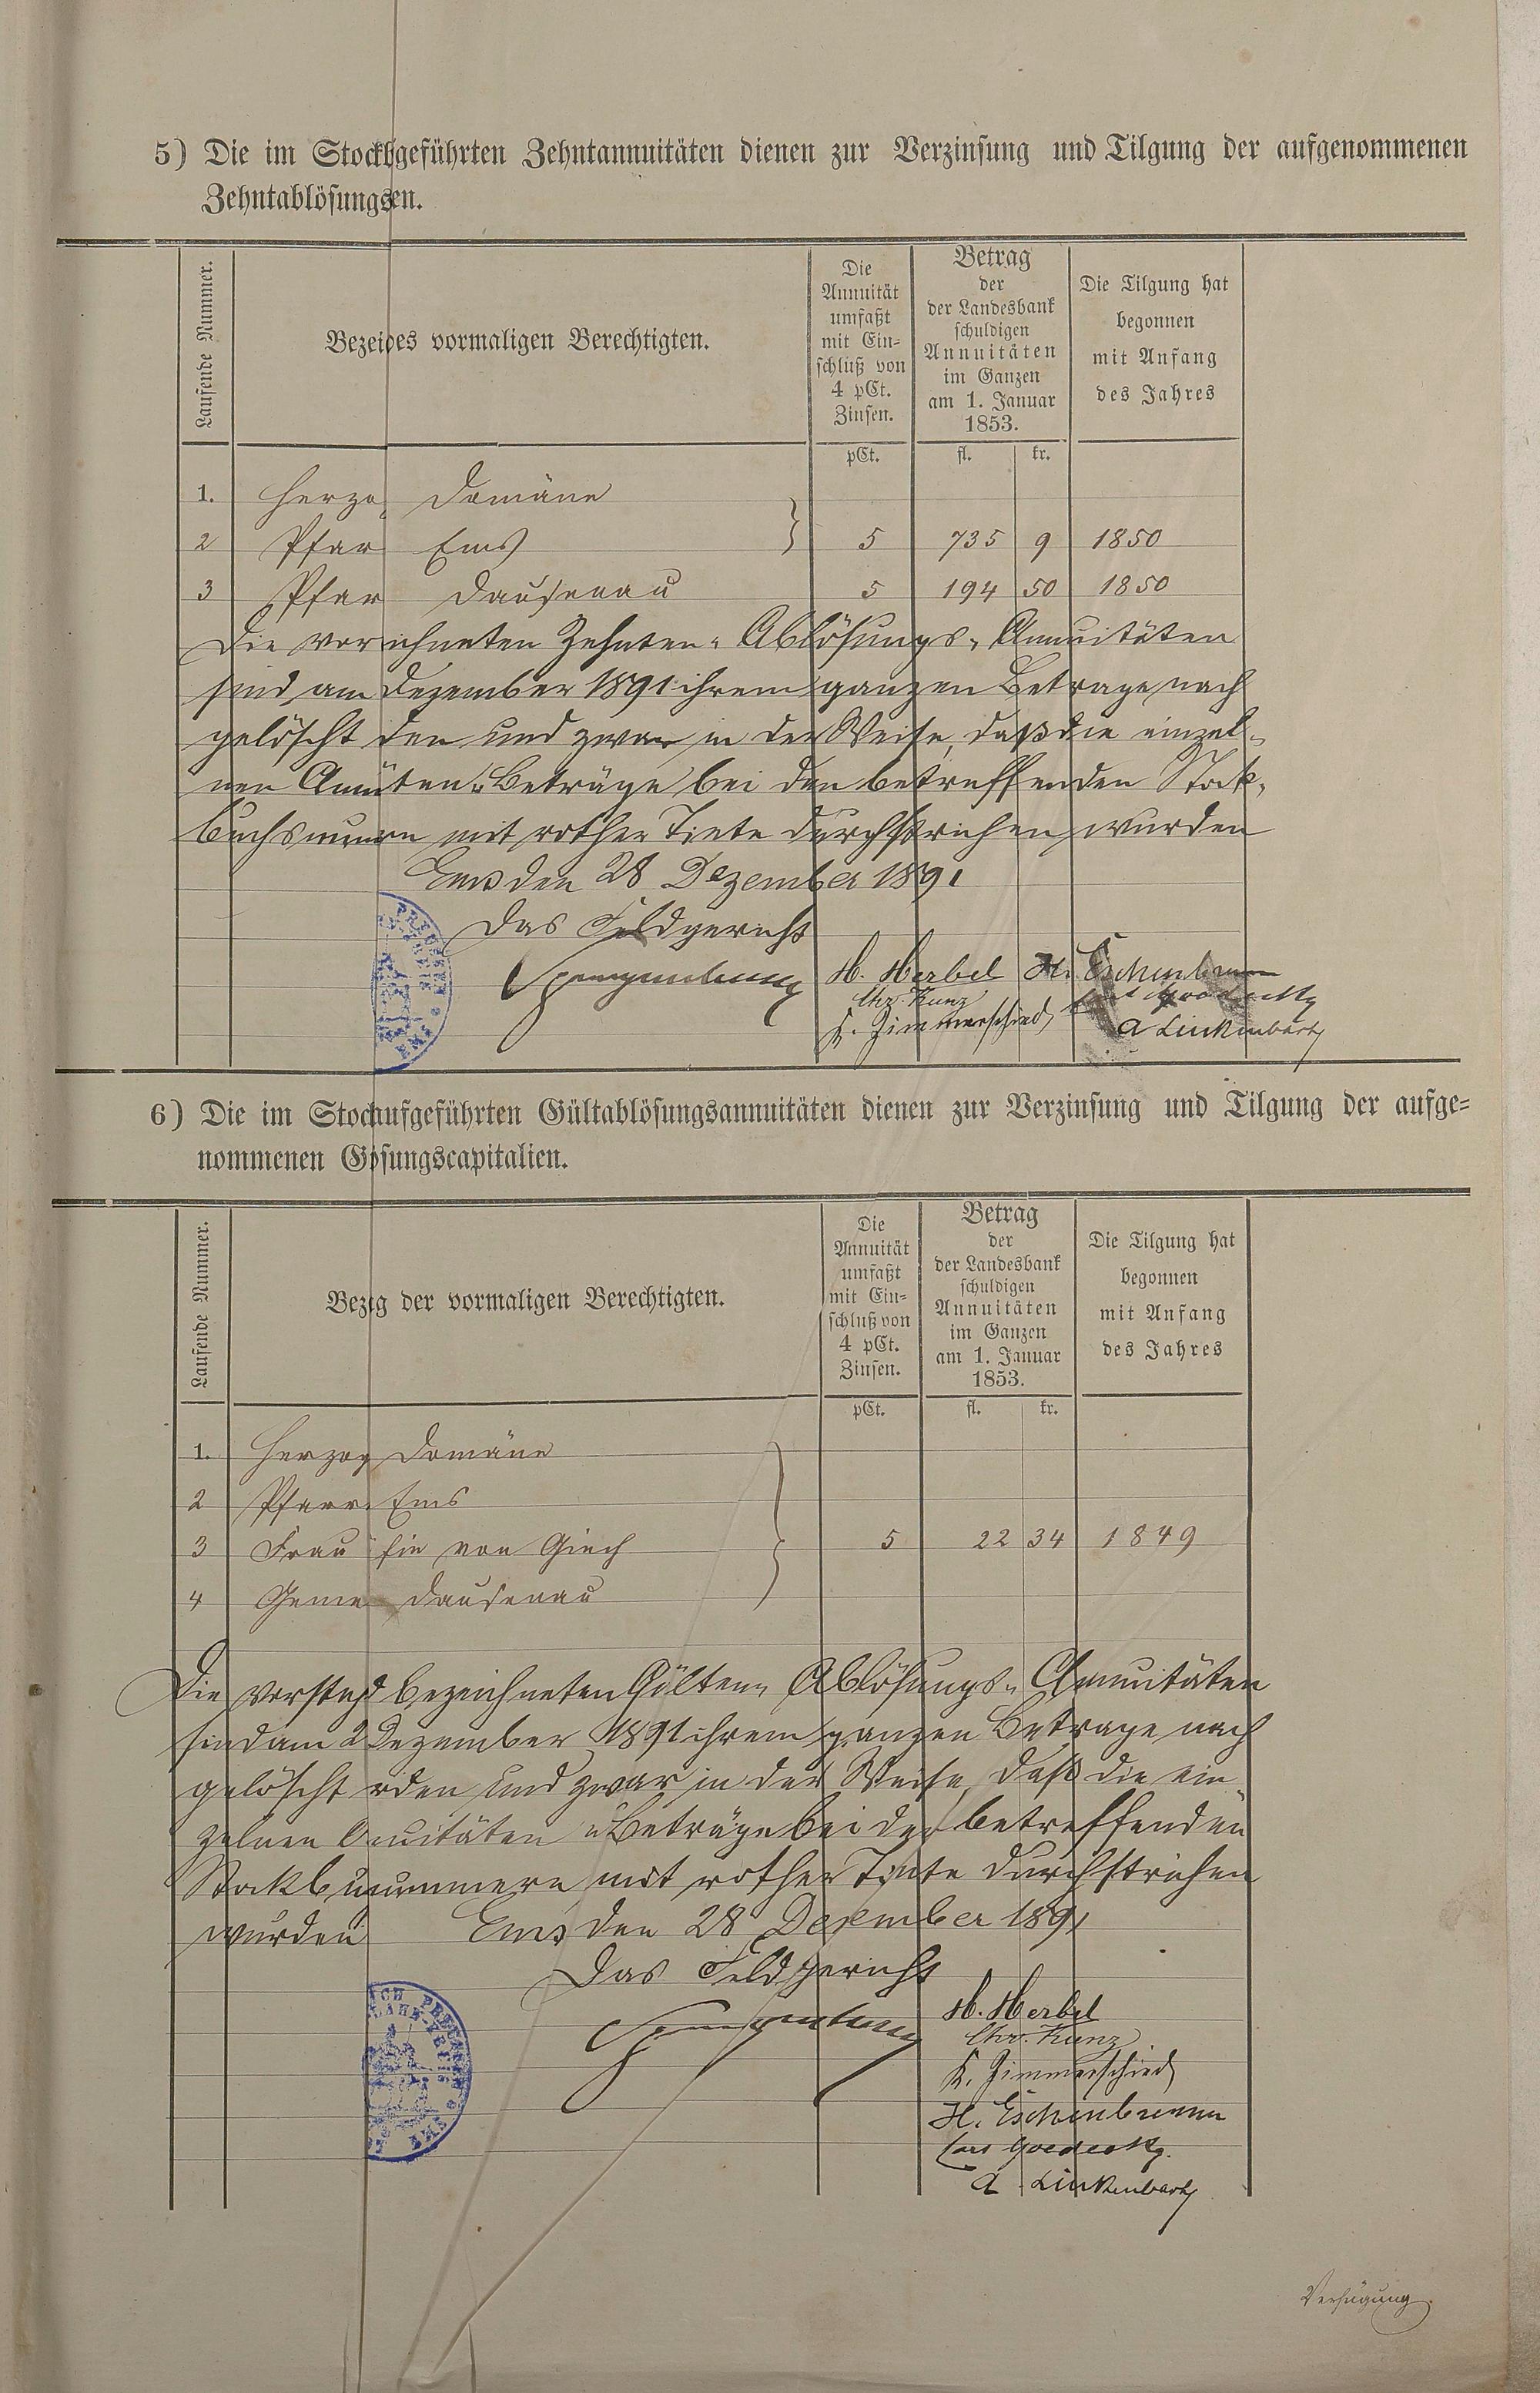 5) Die im Stockbgeführten Zehntannuitäten dienen zur Verzinsung und Tilgung der aufgenommenen
Zehntablösungsen.
Laufende Nummer.
Bezeides vormaligen Berechtigten.
Die
Annuität
umfaßt
mit Ein-
schluß von
4 pCt.
Zinsen.
Betrag
der
der Landesbank
schuldigen
Annuitäten
im Ganzen
am 1. Januar
1853.
Die Tilgung hat
begonnen
mit Anfang
des Jahres
pCt. fl. kr.
1. Herzo Domäne
2 Pfar Ems 5 735 9 1850
3 Pfar Dausenau 5 194 50 1850
Die vor ichneten Zehnten-Ablösungs-Annuitäten
sind am Dezember 1891 ihrem ganzen Betrage nach
gelöscht den und zwar in der Weise, daß die einzel-
nen Annuten-Beträge bei den betreffenden Stock-
buchsnumrn mit rother Tinte durchstrichen wurden
Ems den 28 Dezember 1891
Das Feldgericht
H. Herbel H. Eschenbrenner
Chr. Kunz
K. Zimmerschied
A Linkenbach
6) Die im Stochufgeführten Gültablösungsannuitäten dienen zur Verzinsung und Tilgung der aufge-
nommenen Gösungscapitalien.
Laufende Nummer.
Bezeg der vormaligen Berechtigten.
Die
Annuität
umfaßt
mit Ein-
schluß von
4 pCt.
Zinsen.
Betrag
der
der Landesbank
schuldigen
Annuitäten
im Ganzen
am 1. Januar
1853.
Die Tilgung hat
begonnen
mit Anfang
des Jahres
pCt. fl. kr.
1. Herzog Domäne
2 Pfarr Ems
3 Frau fin von Giech 5 22 34 1849
4 Geme Dausenau
Die vorsteh bezeichneten Gülten-Ablösungs-Annuitäten
sind am 2 Dezember 1891 ihrem ganzen Betrage nach
gelöscht rden und zwar in der Weise, daß die ein-
zelnen Anuitäten-Beträge bei der betreffenden
Stockbunummern mit rother Tinte durchstrichen
wurden Ems den 28 Dezember 1891
Das Feldgericht
H. Herbel
Chr. Kunz
K. Zimmerschied
H. Eschenbrenner
A. Linkenbach
Verfügung.